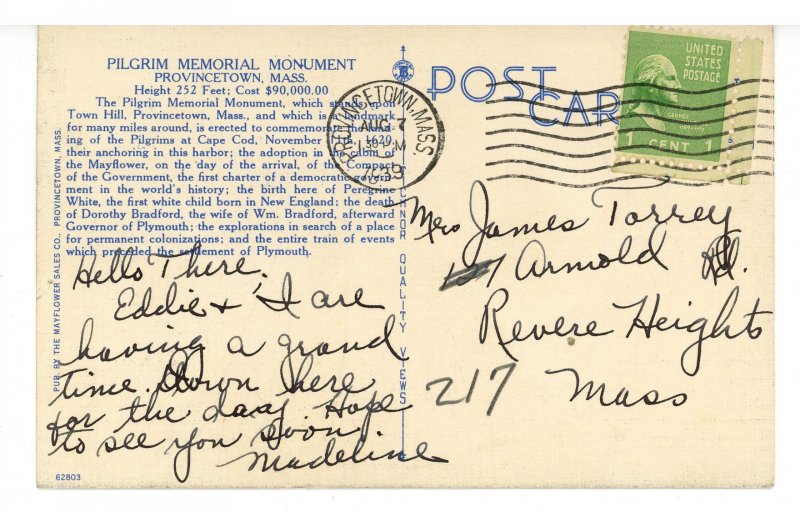 PILGRIM MEMORIAL MONUMENT
PROVINCETOWN, MASS.
Height 252 Feet; Cost $90,000.00
The Pilgrim Memorial Monument, which stands upon
Town Hill, Provincetown, Mass., and which is a landmark
for many miles around, is erected to commemorate the land-
ing of the Pilgrims at Cape Cod, November 1620
their anchoring in this harbor; the adoption in the cabin of
the Mayflower, on the day of the arrival, of the Compact
of the Government, the first charter of a democratic govern-
ment in the world's history; the birth here of Peregrine
White, the first white child born in New England; the death
of Dorothy Bradford, the wife of Wm. Bradford, afterward
Governor of Plymouth; the explorations in search of a place
for permanent colonizations; and the entire train of events
which preceded the settlement of Plymouth.
Hello There.
Eddie + I are
having a grand
time. Down here
for the day. Hope
to see you soon.
Madeline
PUB. BY THE MAYFLOWER SALES CO., PROVINCETOWN, MASS.
62803
TICHNOR QUALITY VIEWS
POST
CARD
PROVINCETOWN, MASS.
AUG 7
1939
UNITED
STATES
POSTAGE
1 CENT 1
Mrs James Torrey
Arnold Rd.
Revere Heights
217 Mass